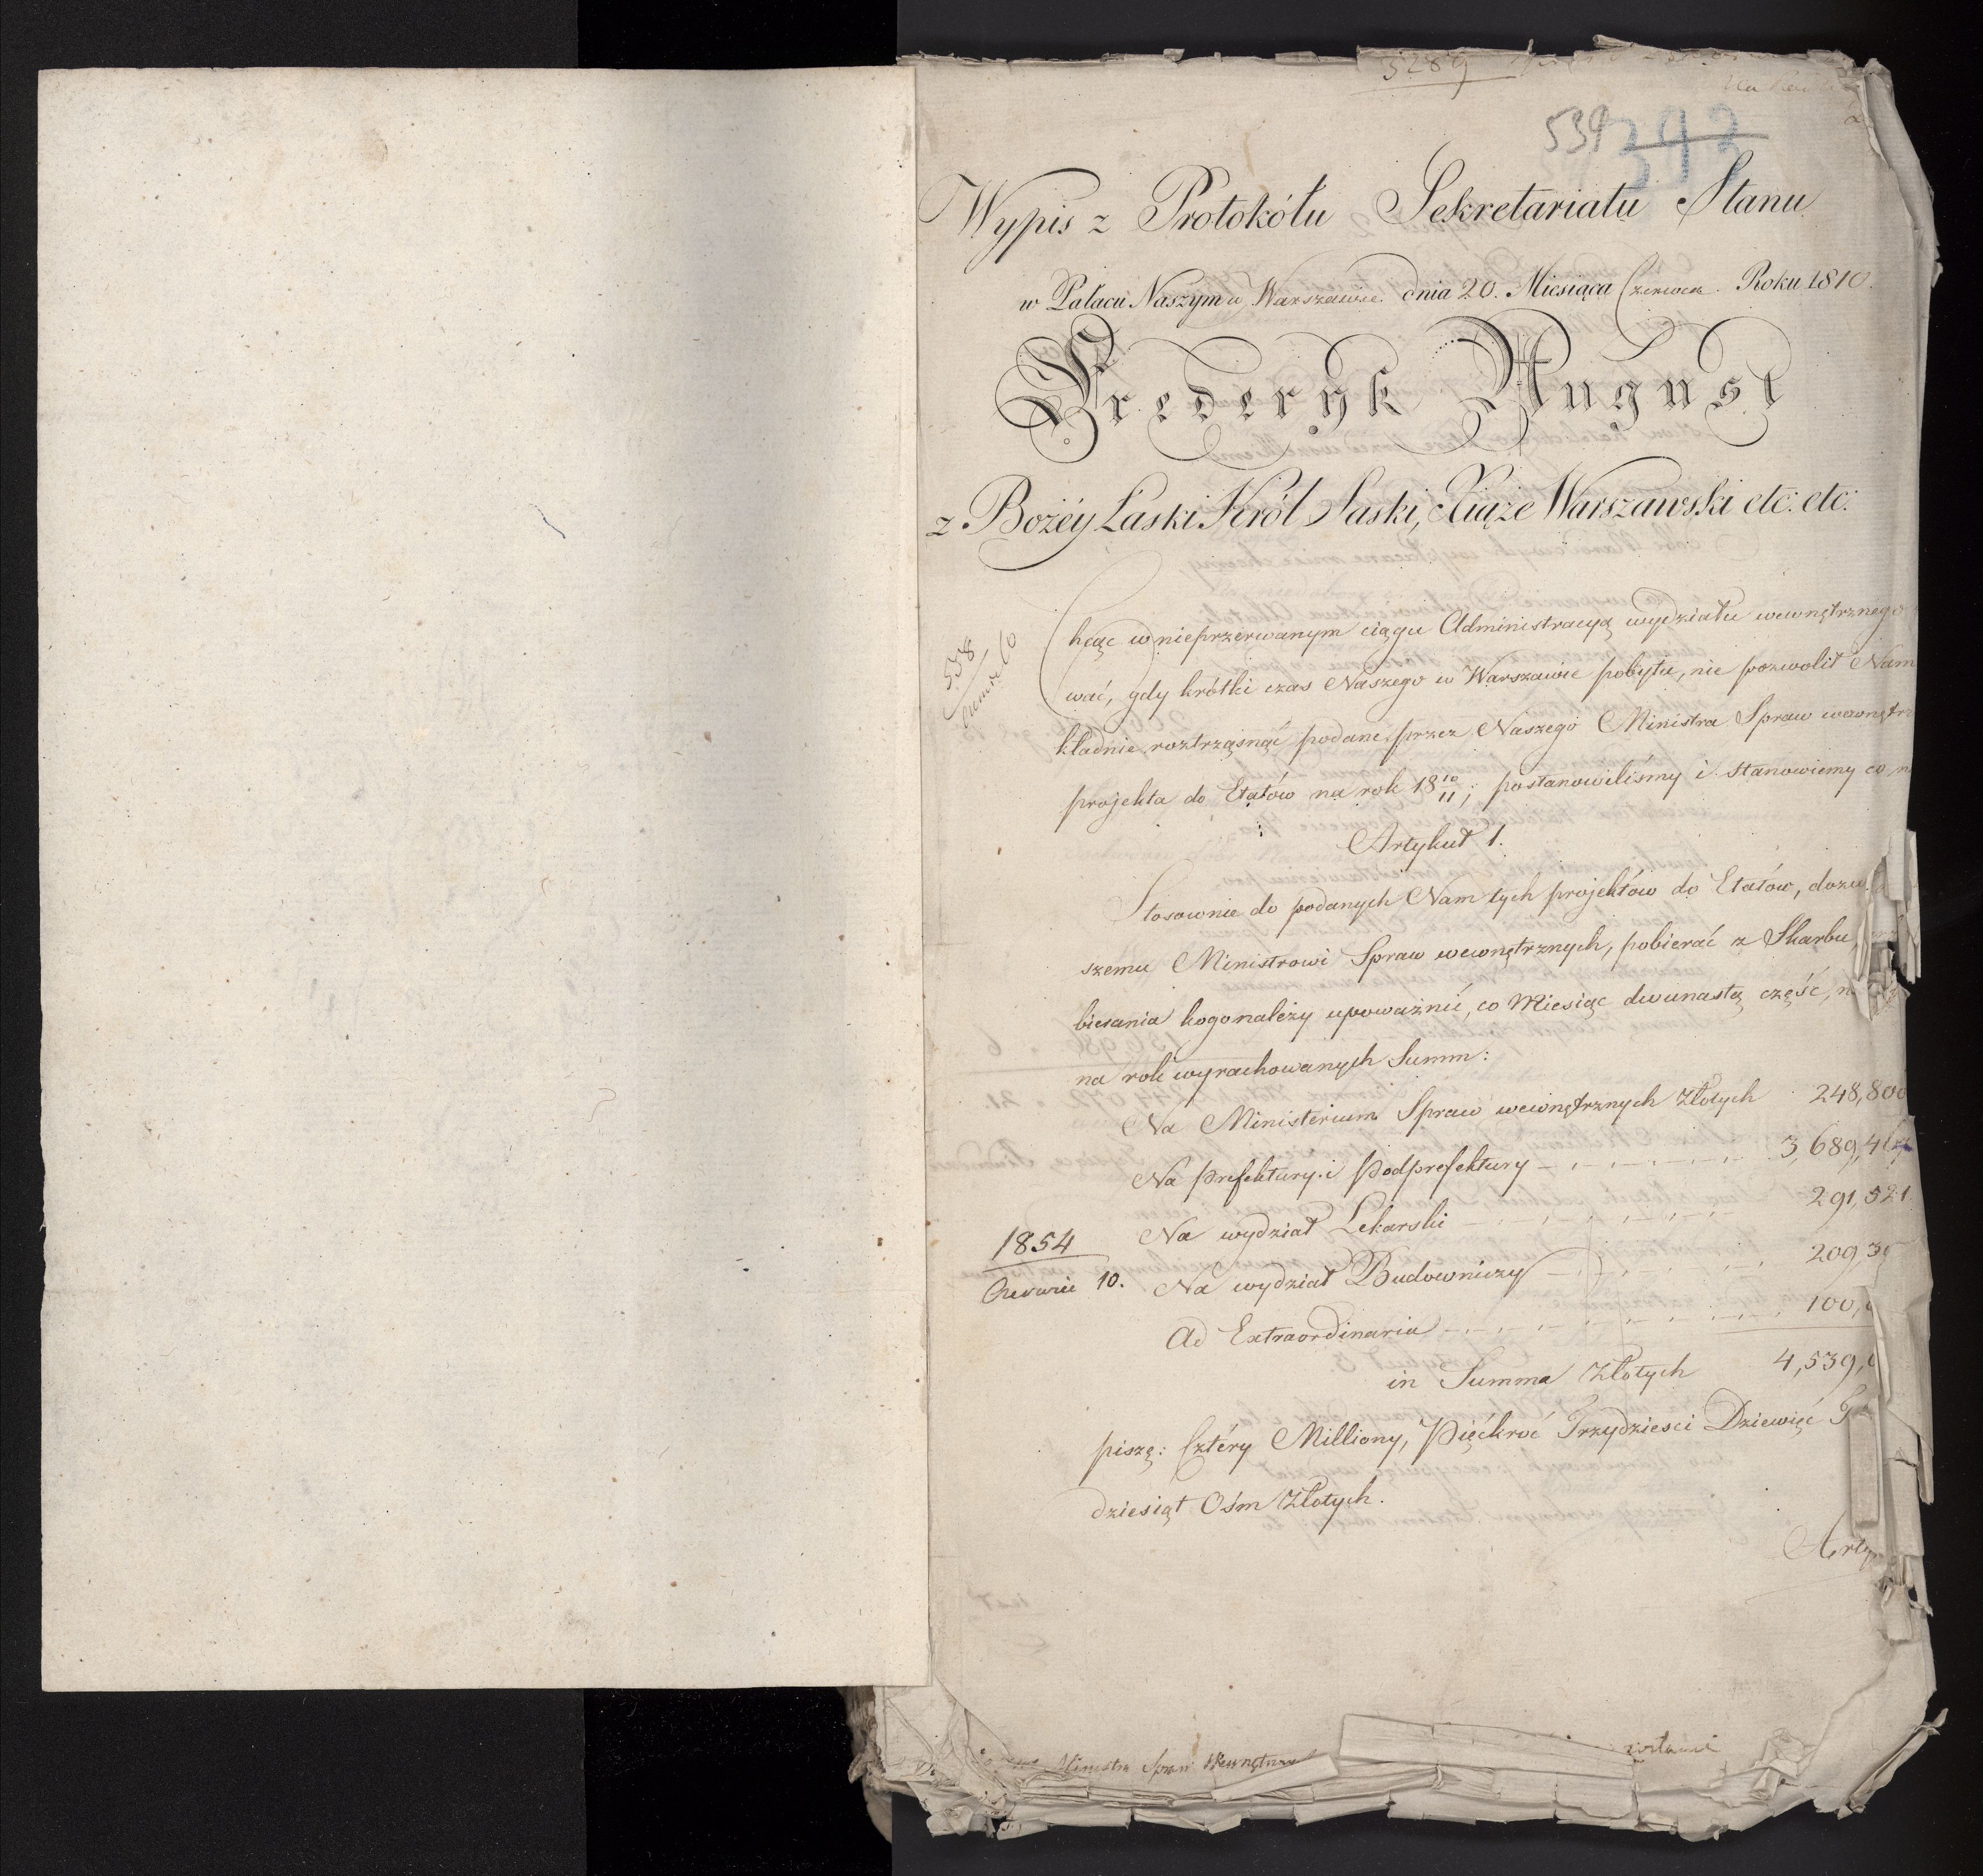 5289
539 393
Wypis z Protokółu Sekretariatu Stanu
w Pałacu Naszym w Warszawie dnia 20. Miesiąca Czerwca Roku 1810.
Frederyk August
z Bożéy Łaski Król Saski, Xiąże Warszawski etc: etc:
558
Chcąc w nieprzerwanym ciągu Administracyą wydziału wewnętrznego
wać, gdy krótki czas Naszego w Warszawie pobytu, nie pozwolił Nam
kładnie roztrząsnąć podane przez Naszego Ministra Spraw wewnętrz
projekta do Etatów na rok 18 10/11; postanowiliśmy i stanowiemy co n
Artykuł 1.
Stosownie do podanych Nam tych projektów do Etatów, dozw
szemu Ministrowi Spraw wewnętrznych, pobierać z Skarbu,
bierania kogo należy upoważnić, co Miesiąc dwunastą część, n
na rok wyrachowanych Summ:
Na Ministerium Spraw wewnętrznych Złotych 248,800
Na prefektury i Podprefektury 3,689,4
Na wydział Lekarski 291,521
1854
Czerwie 10.
Na wydział Budowniczy 209,3
Ad Extraordinaria 100,
in Summa Złotych 4,539,
piszę: Cztéry Milliony, Pięćkroć Trzydzieści Dziewięć T
dziesiąt Ośm Złotych.
Arty
Ministra Spraw Wewnętrzn